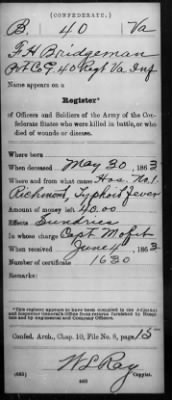 (CONFEDERATE.)
B. 40 Va
F H Bridgeman
Pvt Co G, 40 Regt Va Inf
Name appears on a
Register*
of Officers and Soldiers of the Army of the Con-
federate States who were killed in battle, or who
died of wounds or disease.
Where born
When deceased May 30, 1863
Where and from what cause Hos. No. 1
Richmond, Typhoid Fever
Amount of money left 40.00
Effects Sundries
In whose charge Capt.
When received June 4, 1863
Number of certificate 1630
Remarks:
*This register appears to have been compiled in the Adjutant
and Inspector General's Office from returns furnished by Hospi-
tals and by regimental and Company Officers.
Confed. Arch., Chap. 10, File No. 9, page 15
W L Ray
Copyist.